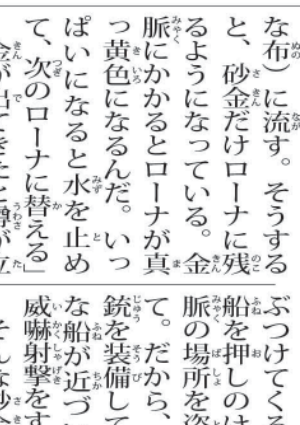 な布）に流す。そうする
と、砂金だけローナに残
るようになっている。金
脈にかかるとローナが真
っ黄色になるんだ。いっ
ぱいになると水を止め
て、次のローナに替える」
金が出てきたと噂が立
ぶつけてくる
船を押しのけ
脈の場所を盗
て。だから、
銃を装備して
な船が近づい
威嚇射撃をす
そんな砂金